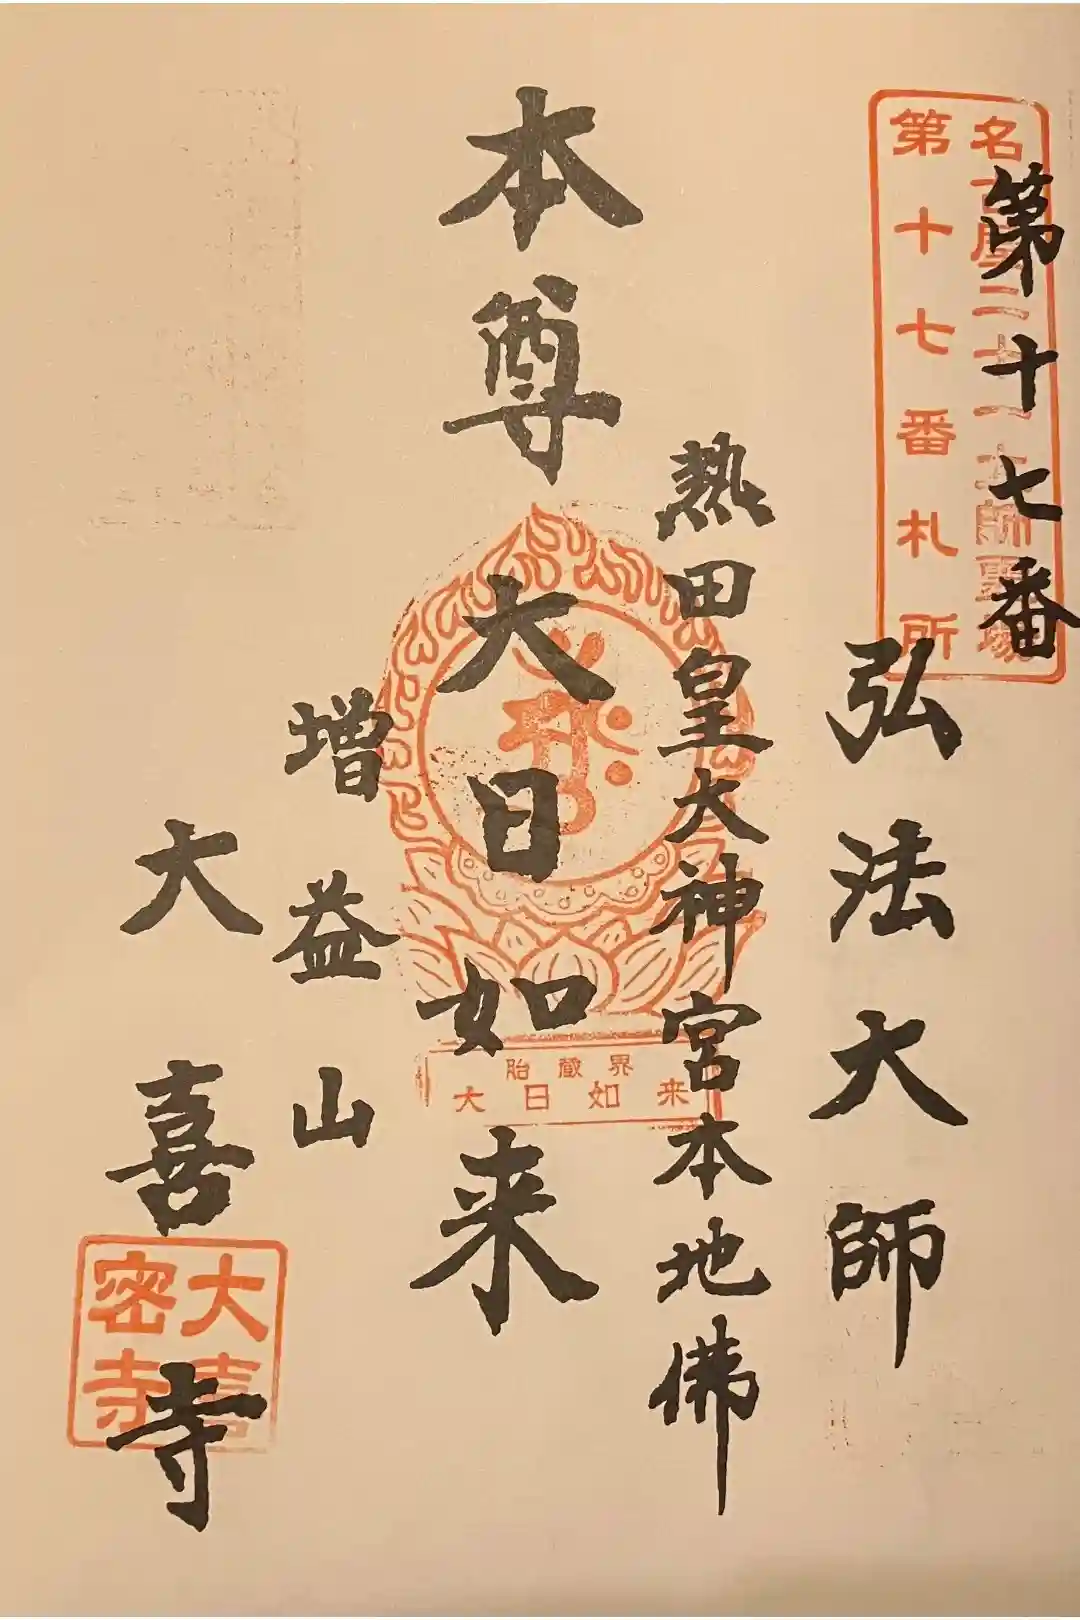 第十七番
名古屋二十一大師霊場
第十七番札所
弘法大師
熱田皇大神宮本地佛
本尊大日如来
胎蔵界
大日如来
増益山
大喜寺
大喜
密寺